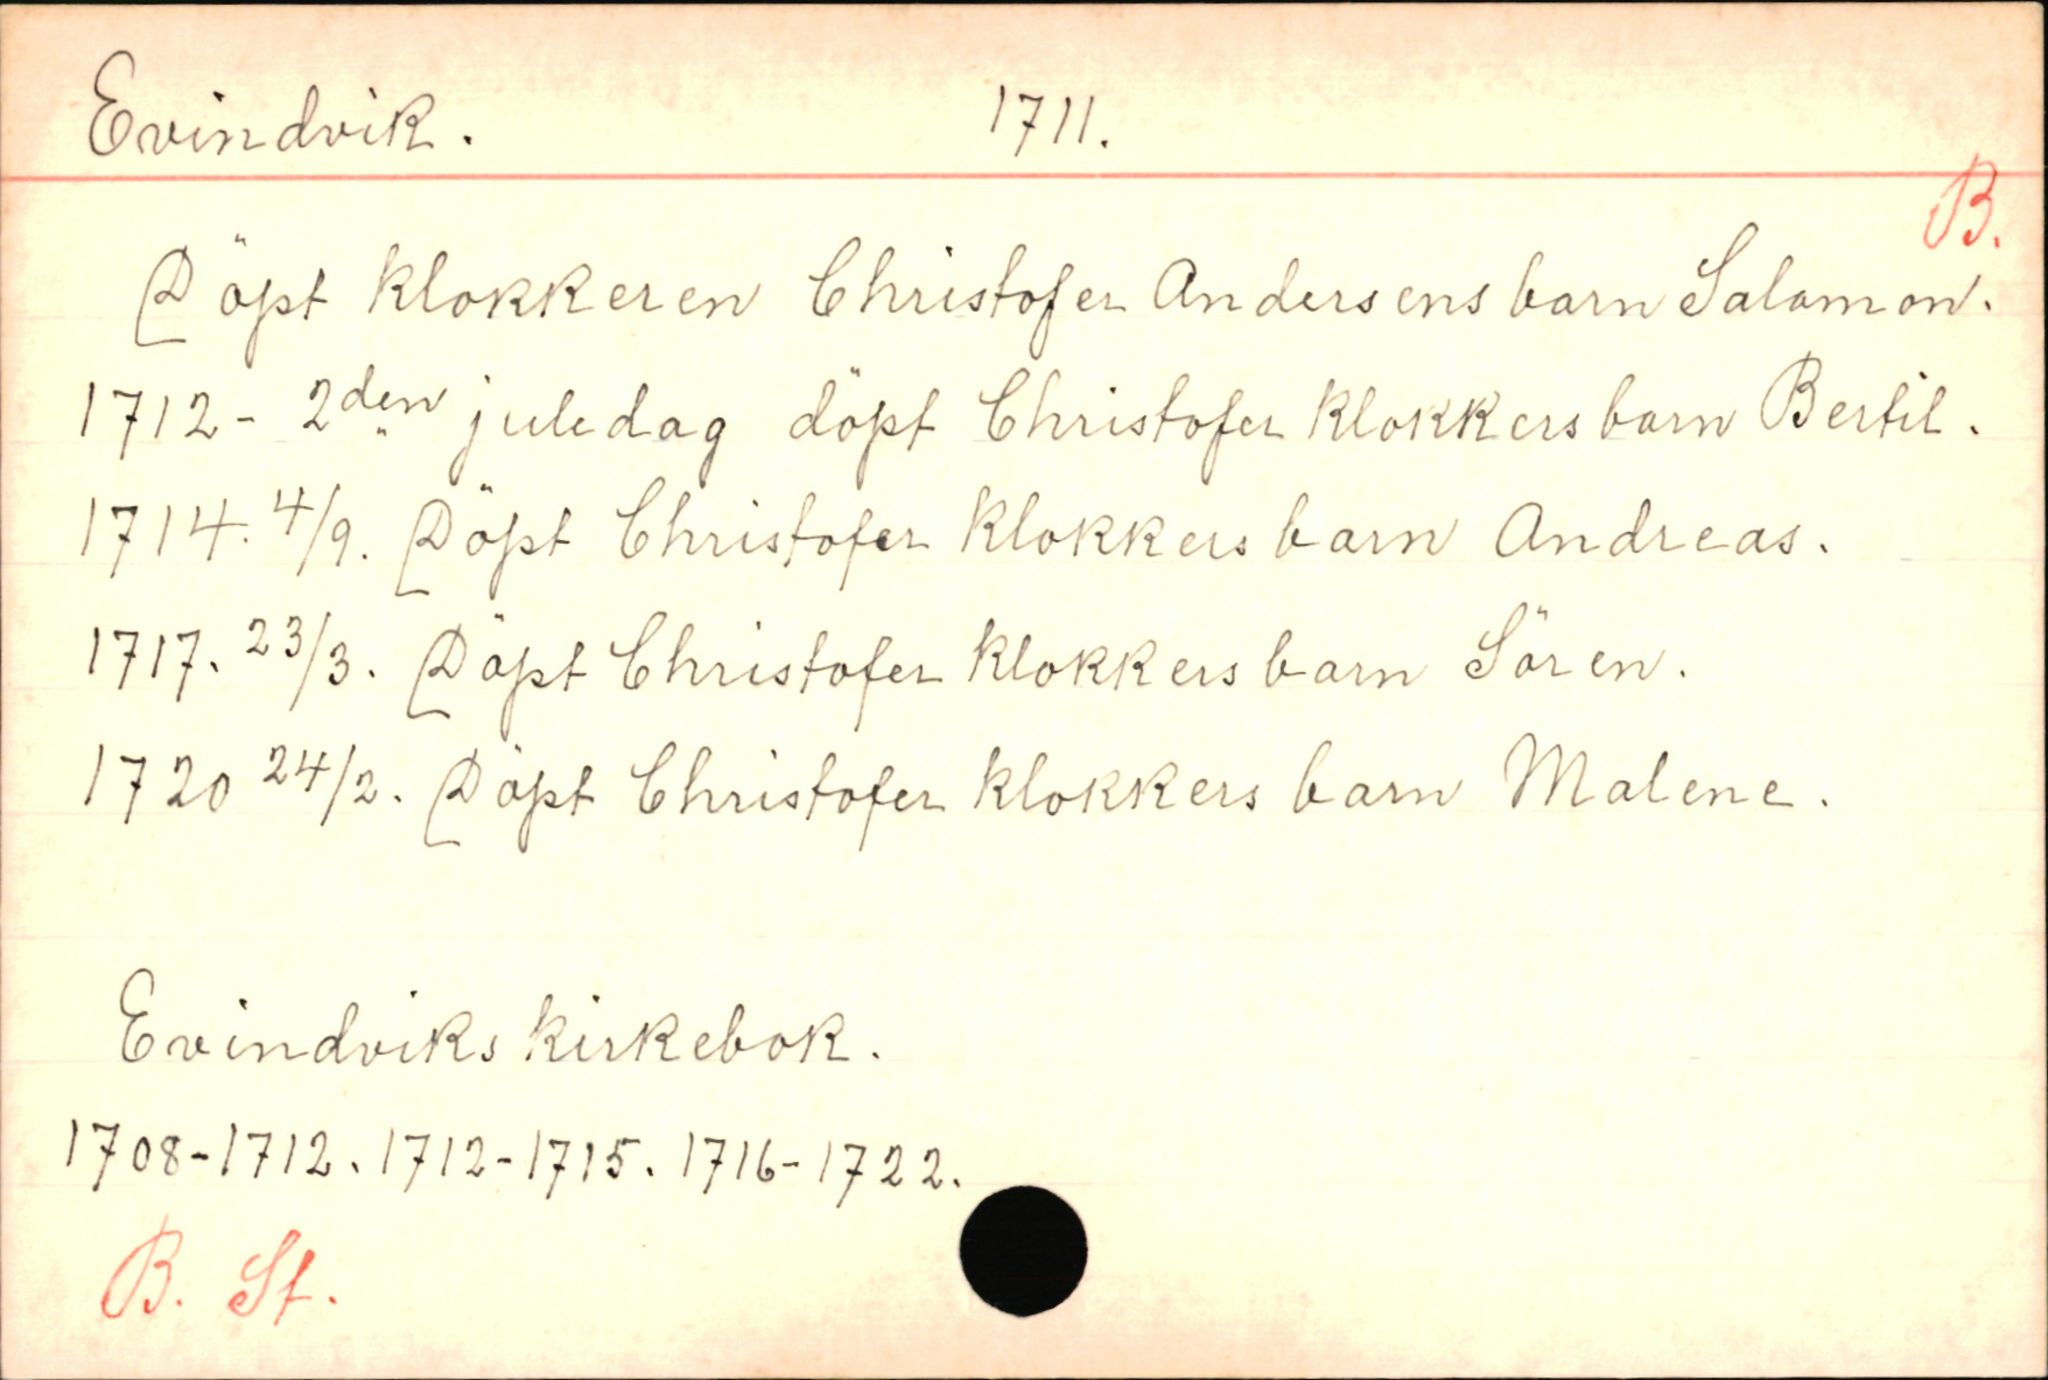 Evindvik. 1711.
B.
Döpt klokkeren Christofer Andersens barn Salamon.
1712 - 2den juledag döpt Christofer klokkers barn Bertil.
1714. 4/9. Döpt Christofer klokkers barn Andreas.
1717. 23/3. Döpt Christofer klokkers barn Sören.
1720 24/2. Döpt Christofer klokkers barn Malene.
Evindviks kirkebok.
1708-1712. 1712-1715. 1716-1722.
B. St.